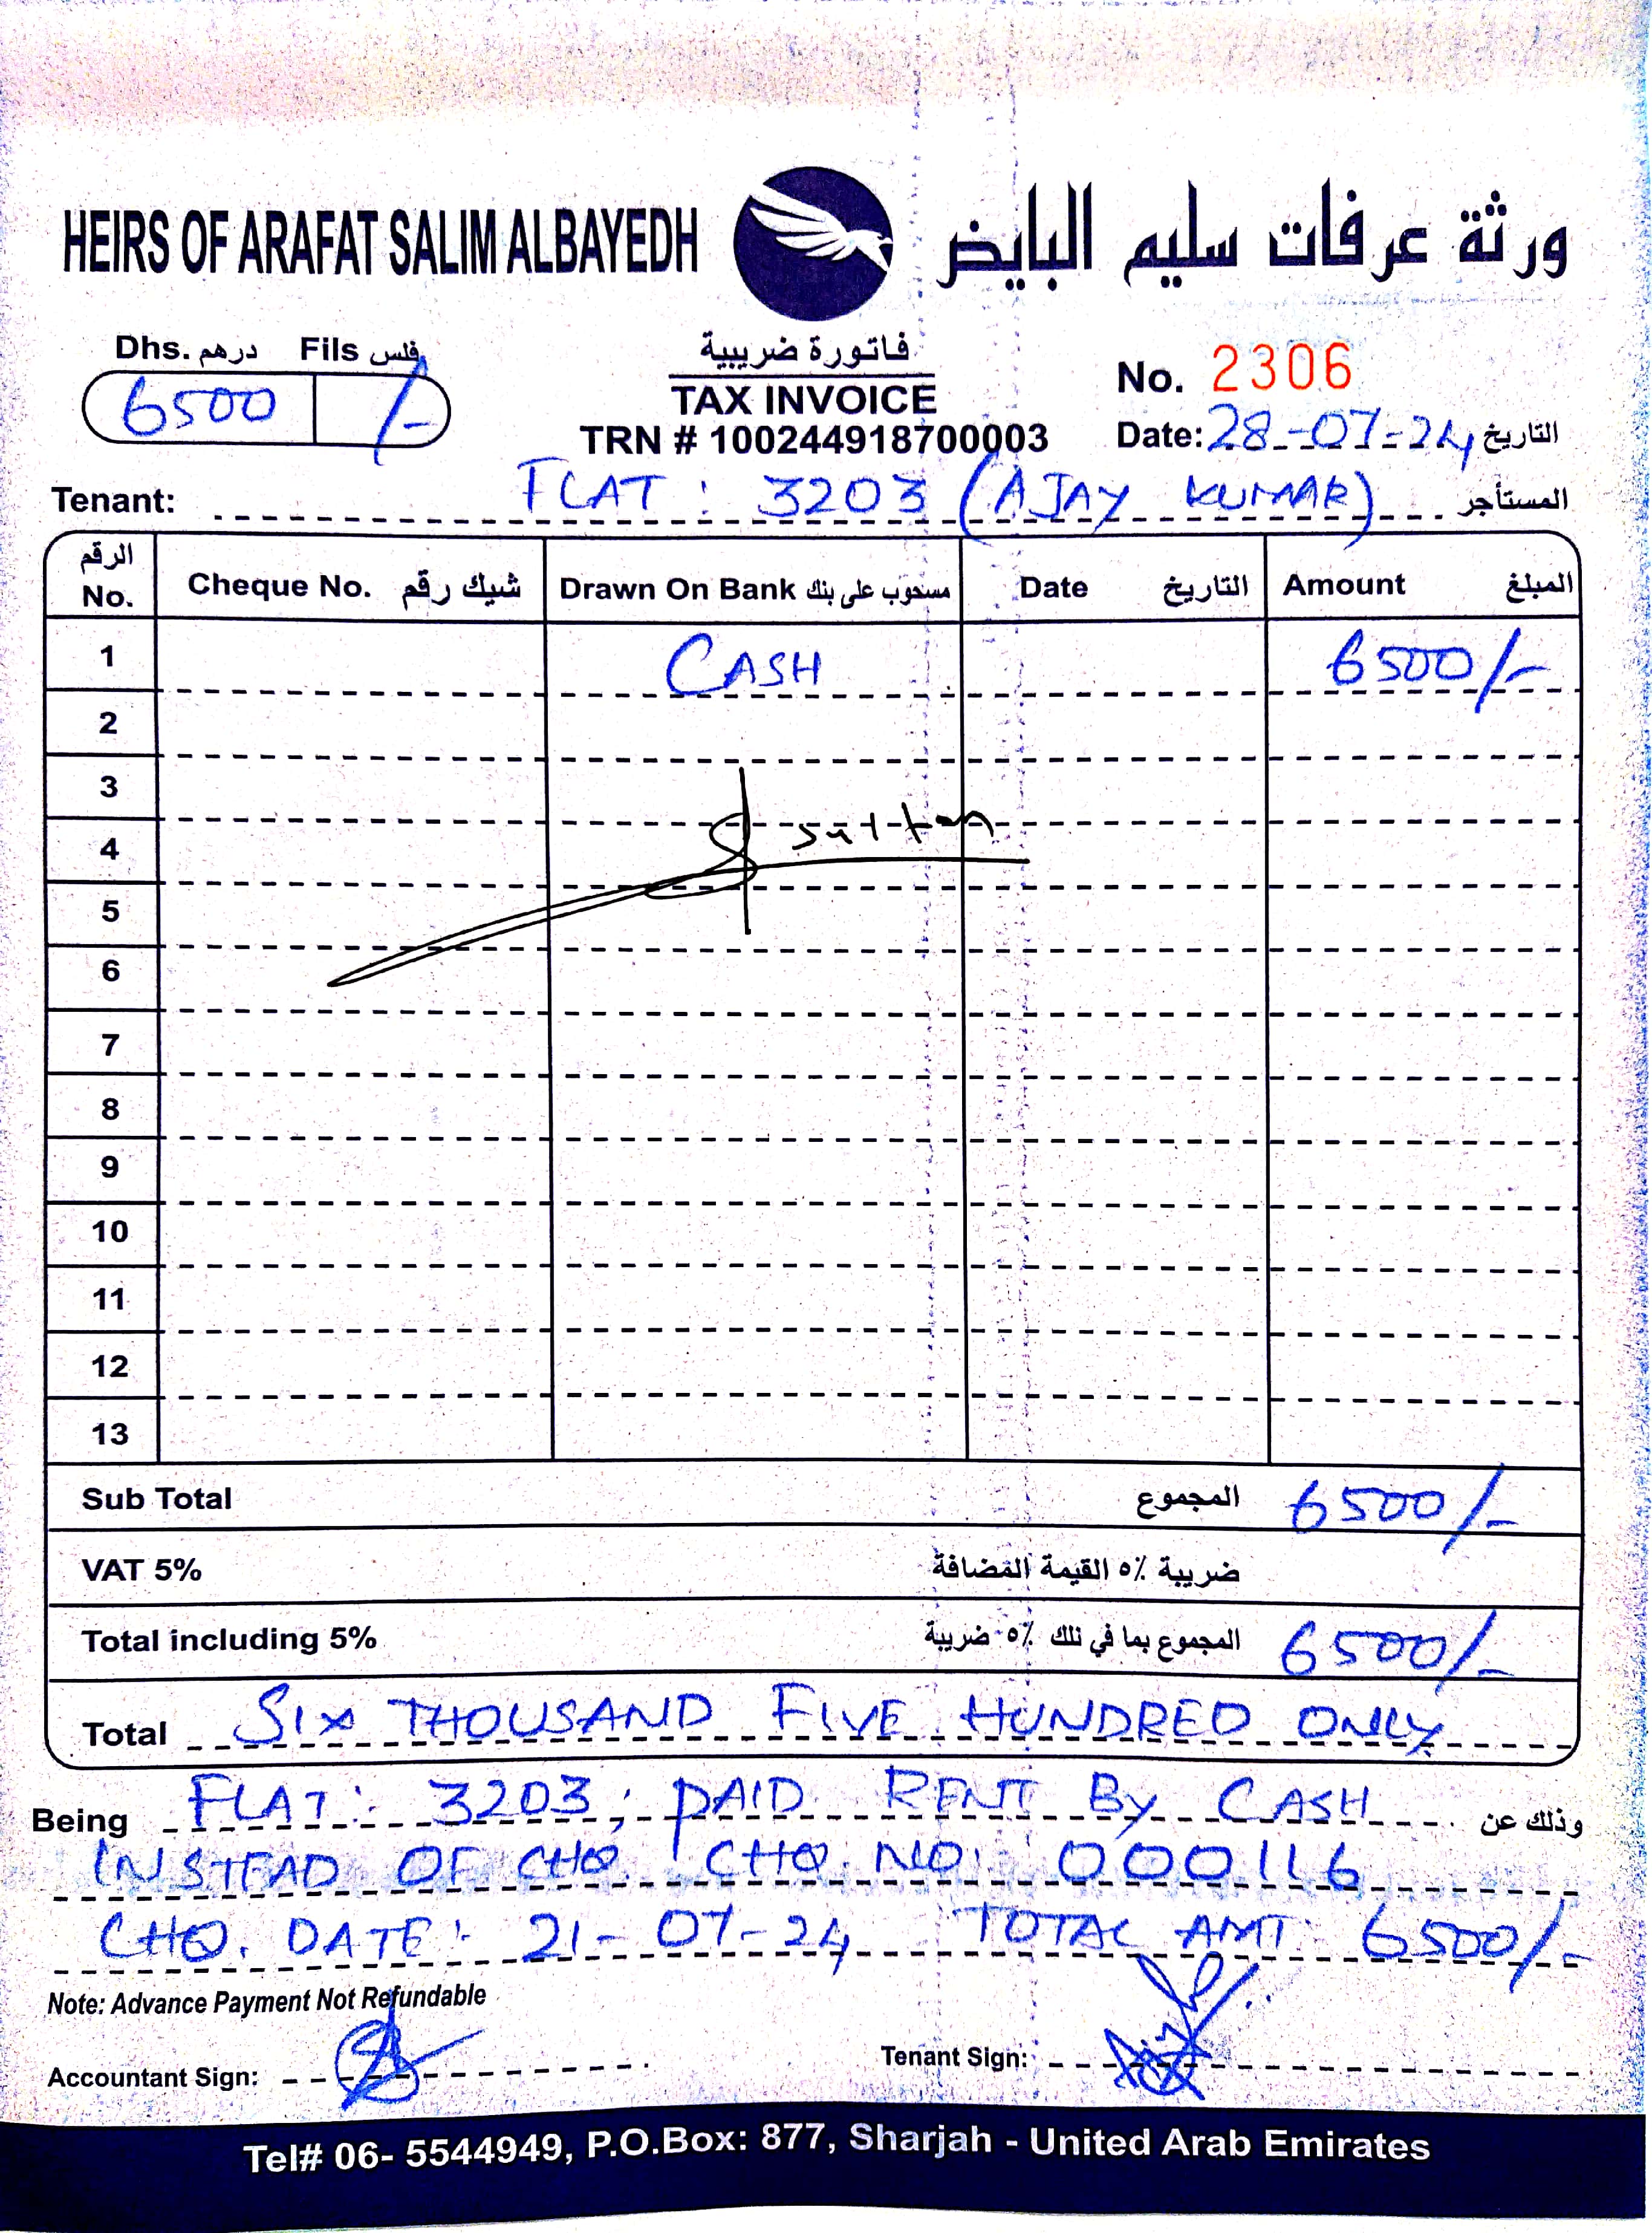 HEIRS OF ARAFAT SALIM ALBAYEDH ورثة عرفات سليم البايض
Dhs. درهم Fils فلس
6500 /-
فاتورة ضريبية
TAX INVOICE
TRN # 100244918700003
No. 2306
Date: 28-07-24 التاريخ
Tenant: FLAT : 3203 (AJAY KUMAR) المستأجر
الرقم No. Cheque No. شيك رقم Drawn On Bank مسحوب على بنك Date التاريخ Amount المبلغ
1 CASH 6500/-
2
3
4 sultan
5
6
7
8
9
10
11
12
13
Sub Total المجموع 6500/-
VAT 5% ضريبة ٥٪ القيمة المضافة
Total including 5% المجموع بما في ذلك ٥٪ ضريبة 6500/-
Total SIX THOUSAND FIVE HUNDRED ONLY
Being FLAT: 3203, PAID RENT By CASH وذلك عن
INSTEAD OF CHQ. CHQ. NO: 000116
CHQ. DATE: 21-07-24 TOTAL AMT: 6500/-
Note: Advance Payment Not Refundable
Accountant Sign: Tenant Sign:
Tel# 06- 5544949, P.O.Box: 877, Sharjah - United Arab Emirates